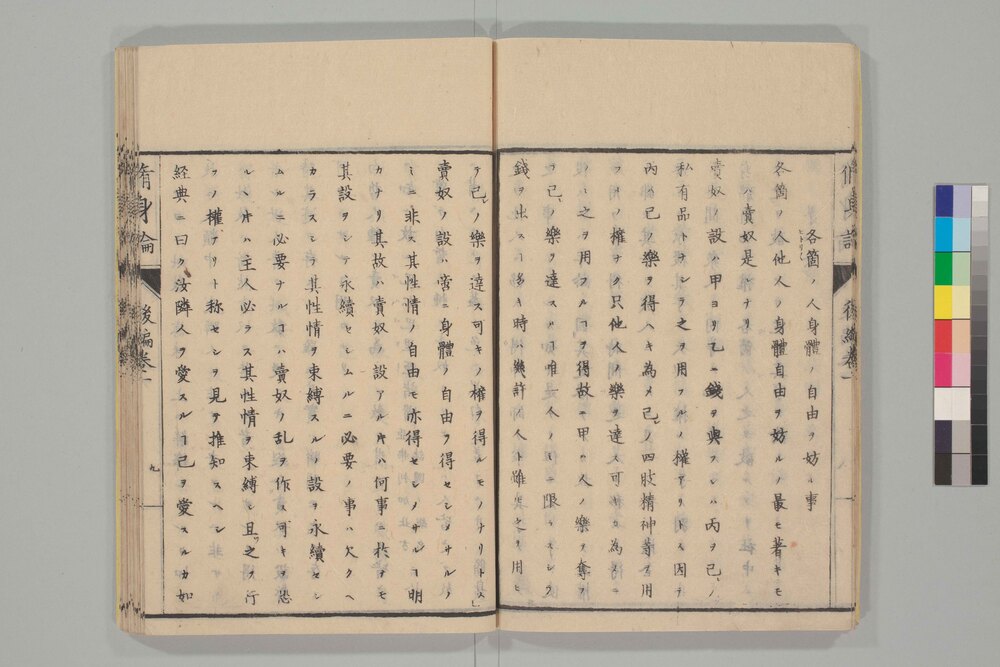 各箇ノ人身體ノ自由ヲ妨ル事
各箇ノ人他人ノ身體自由ヲ妨ルノ最モ著キモ
ノハ賣奴是ナリ
賣奴ノ設ハ甲ヨリ乙ニ錢ヲ與フレハ丙ヲ己ノ
私有品トナシテ之ヲ用フルノ權アリトス因テ
丙ハ己ノ樂ヲ得ヘキ為メ己ノ四肢精神等ヲ用
フルノ權ナク只他人ノ樂ヲ達ス可キカ為メニ
ノミ之ヲ用フルヿヲ得故ニ甲ハ人ノ樂ヲ奪フ
テ己ノ樂ヲ達ス
錢ヲ出スヿ多キ時ハ幾許個人ト雖モ之ヲ用ヒ
テ己ノ樂ヲ達ス可キノ權ヲ得ルモノナリトス
賣奴ノ設啻ニ身體ノ自由ヲ得セシメサルノ
ミニ非ス其性情ノ自由モ亦得セシメサルヿ明
カナリ其故ハ賣奴ノ設アルキハ何事ニ於テモ
其設ヲシテ永續セシムルニ必要ノ事ハ欠クヘ
カラスシテ其性情ヲ束縛スルノ設ヲ永續セシ
ムルニ必要ナルヿハ賣奴ノ乱ヲ作ス可キヲ恐
ルレハ主人必ラス其性情ヲ束縛シ且之ヲ行
フノ權アリト称セシヲ見ヲ推知スヘシ
経典ニ曰ク汝隣人ヲ愛スルヿ己ヲ愛スルカ如
脩身論
後編卷一
九